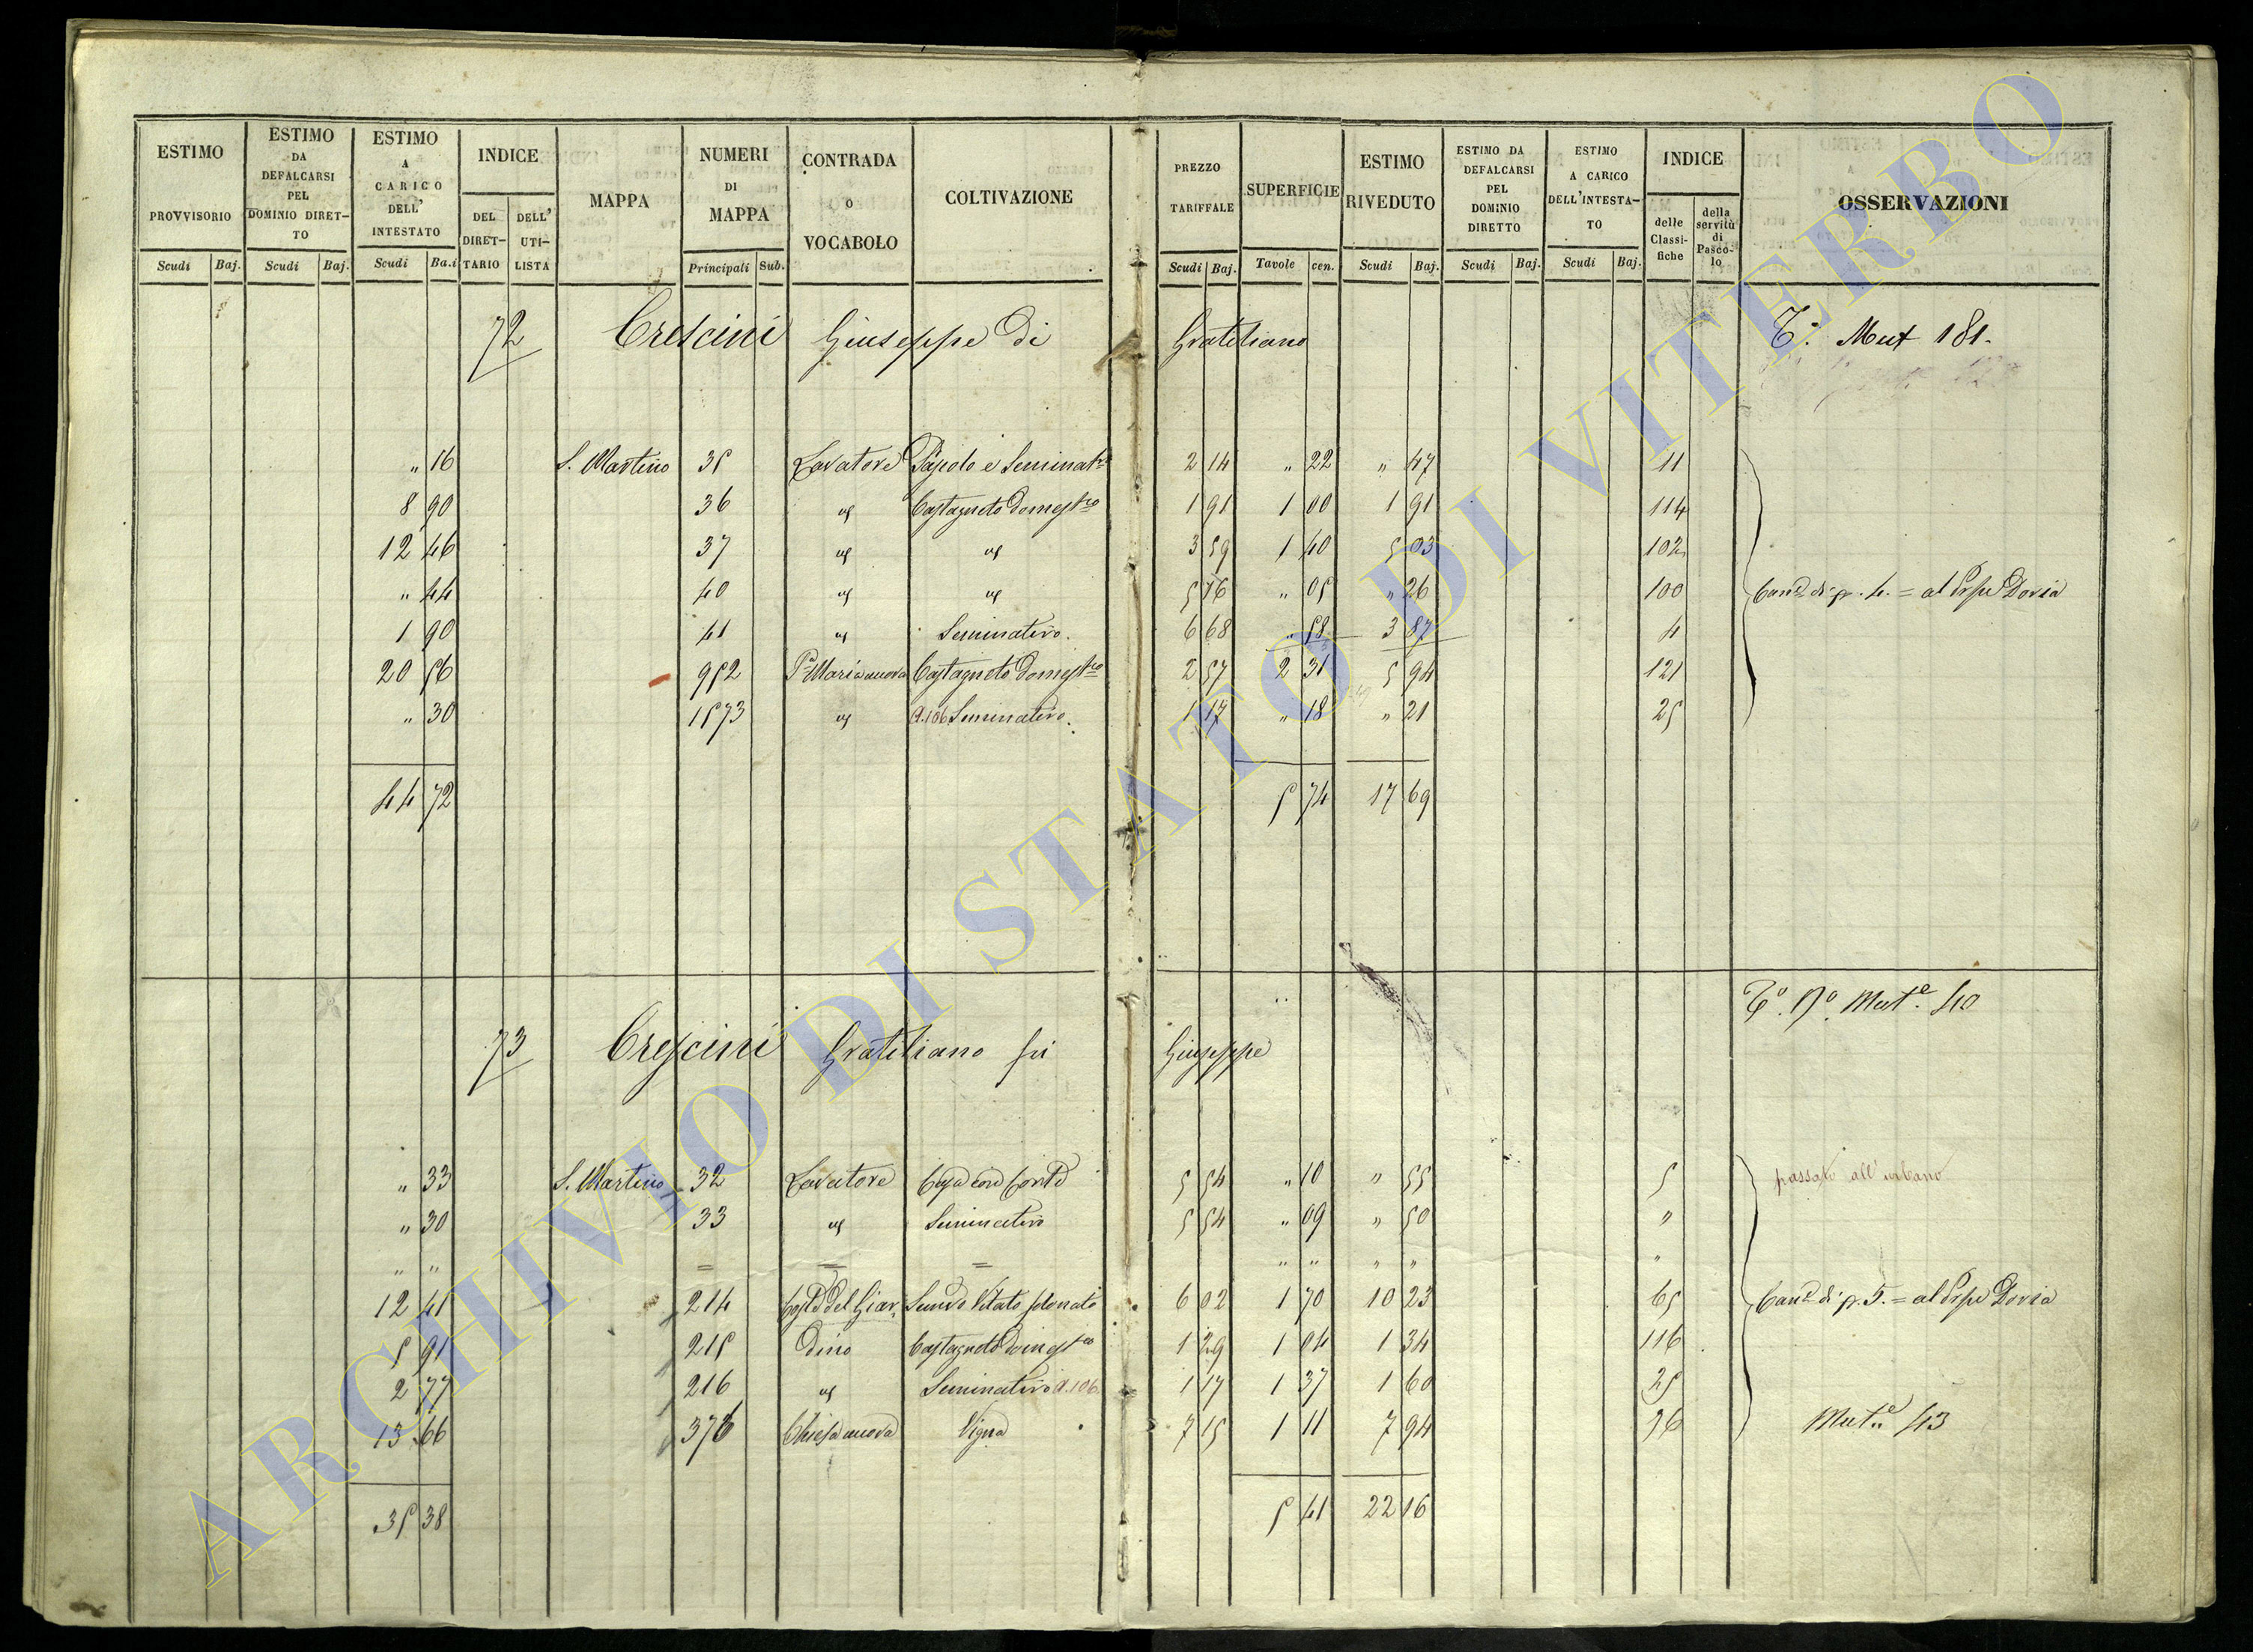 ESTIMO PROVVISORIO Scudi Baj.
ESTIMO DA DEFALCARSI PEL DOMINIO DIRET-TO Scudi Baj.
ESTIMO A CARICO DELL' INTESTATO Scudi Ba.i
INDICE DEL DIRET-TARIO DELL' UTI-LISTA
MAPPA
NUMERI DI MAPPA Principali Sub.
CONTRADA O VOCABOLO
COLTIVAZIONE
PREZZO TARIFFALE Scudi Baj.
SUPERFICIE Tavole cen.
ESTIMO RIVEDUTO Scudi Baj.
ESTIMO DA DEFALCARSI PEL DOMINIO DIRETTO Scudi Baj.
ESTIMO A CARICO DELL'INTESTA-TO Scudi Baj.
INDICE delle Classi-fiche della servitù di Pasco-lo
OSSERVAZIONI
72 Crescini Giuseppe di Gratiliano Mut 181.
" 16 S. Martino 35 Lavatore Pascolo e Seminat° 2 14 " 22 " 47 11
8 90 36 " Castagneto Domestco 1 91 1 00 1 91 114
12 46 37 " " 3 59 1 40 5 03 102
" 44 40 " " 5 16 " 05 " 26 100 di p. 4. = al Doria
1 90 41 " Seminativo. 6 68 " 58 3 87 4
20 56 952 Maria nuova Castagneto Domestco 2 57 2 31 5 94 121
" 30 1573 " a.106 Seminativo. 1 17 " 18 " 21 25
44 72 5 74 17 69
Mute. 40
73 Crescini Gratiliano fu Giuseppe
" 33 S. Martino 32 Lavatore Casa con Corte 5 54 " 10 " 55 5 passato all'urbano
" 30 33 " Seminativo 5 54 " 09 " 50 "
" " = = = " " " " "
12 41 214 del Giar. Vitato 6 02 1 70 10 23 65 di p. 5. = al Doria
5 91 215 Castagneto Domestco 1 29 1 04 1 34 116
2 77 216 " Seminativo a.106 1 17 1 37 1 60 25
13 66 376 Chiesa nuova Vigna 7 15 1 11 7 94 76 Mute. 43
35 38 5 41 22 16
ARCHIVIO DI STATO DI VITERBO